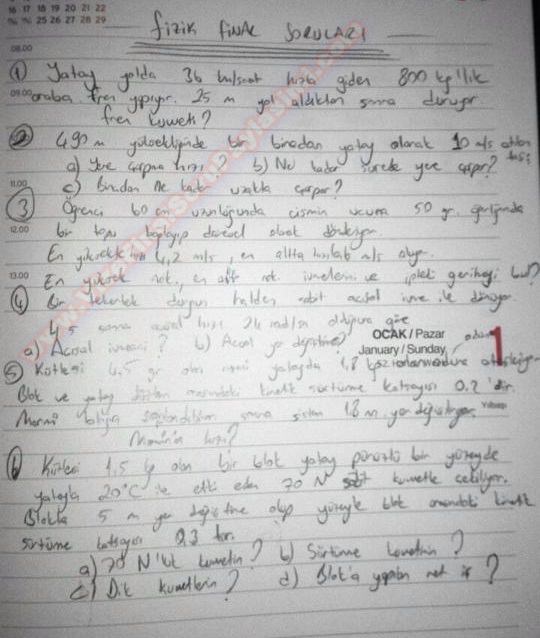 16 17 18 19 20 21 22
% % 25 26 27 28 29
FİZİK FİNAL SORULARI
08.00
① Yatay yolda 36 km/saat hızla giden 800 kg'lık
09.00 araba fren yapıyor. 25 m yol aldıktan sonra duruyor
fren kuvveti?
② 490 m yüksekliğinde bir binadan yatay olarak 10 m/s atılan
a) Yere çarpma hızı b) Ne kadar sürede yere çarpar?
11.00 c) Binadan ne kadar uzakta çarpar?
③ Öğrenci 60 cm uzunluğunda cismin ucuna 50 gr. ağırlığında
12.00 bir topu bağlayıp dairesel olarak döndürüyor.
En yüksekte hızı 4,2 m/s, en altta m/s oluyor.
13.00 En yüksek nok., en alt nok. ivmelerini ve ipteki gerilmeyi bul?
④ Bir tekerlek durgun halden sabit açısal ivme ile dönüyor.
4 s sonra açısal hızı 24 rad/sn olduğuna göre
a) Açısal ivmesi? b) Açısal yer değiştirme?
OCAK / Pazar
January / Sunday
1
⑤ Kütlesi 4,5 gr olan mermi yatayda 1,8 kg
Blok ve yatay düzlem arasındaki kinetik sürtünme katsayısı 0.2 'dir.
Mermi bloğa saplandıktan sonra sistem 1.8 m yer değiştiriyor.
Merminin hızı?
⑥ Kütlesi 1,5 kg olan bir blok yatay pürüzlü bir yüzeyde
yatayla 20°C ile etki eden 70 N sabit kuvvetle çekiliyor.
Blokta 5 m yer değiştirme olup yüzeyle blok arasındaki kinetik
sürtünme katsayısı 0.3 tür.
a) 70 N'luk kuvvetin? b) Sürtünme kuvvetinin?
c) Dik kuvvetlerin? d) Blok'a yapılan net iş?